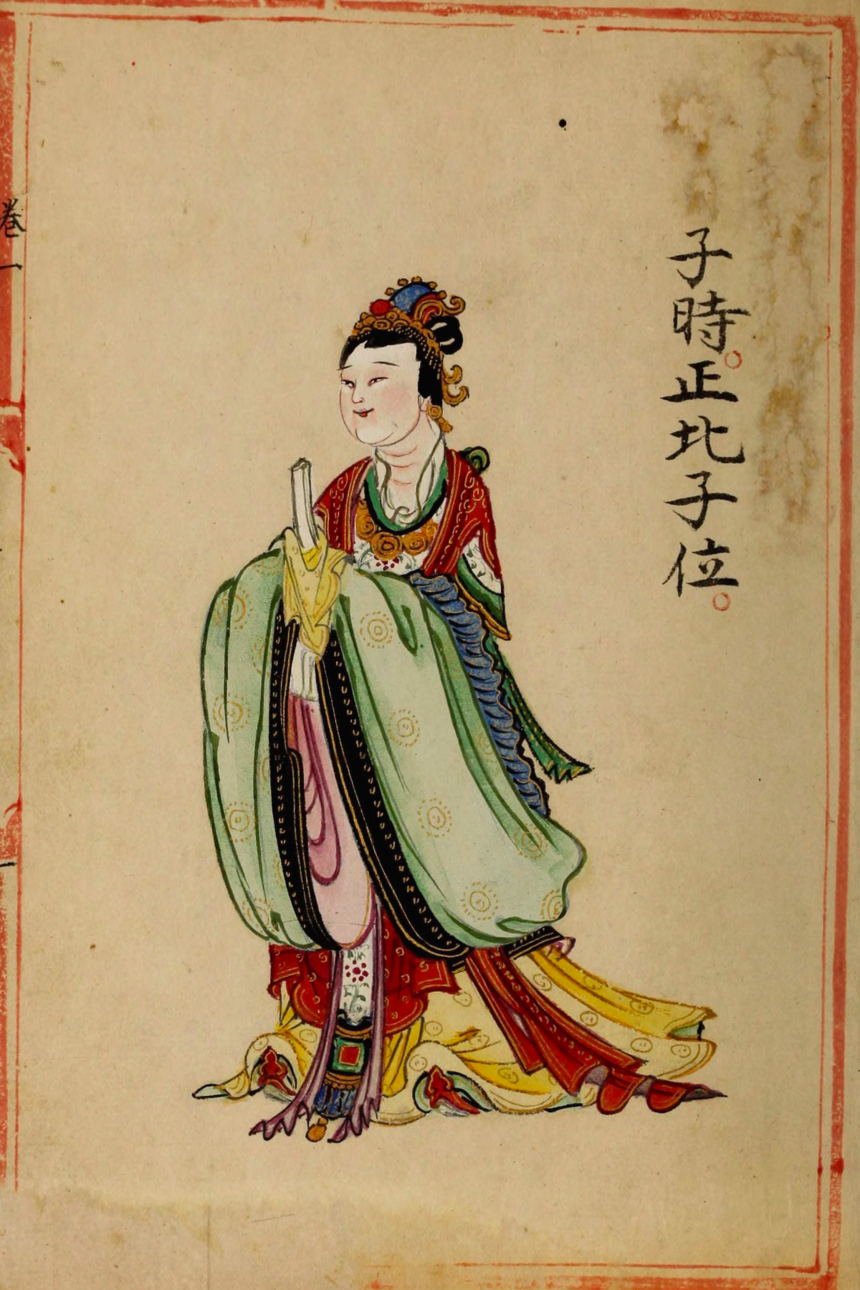 子時。正北子位。
卷一